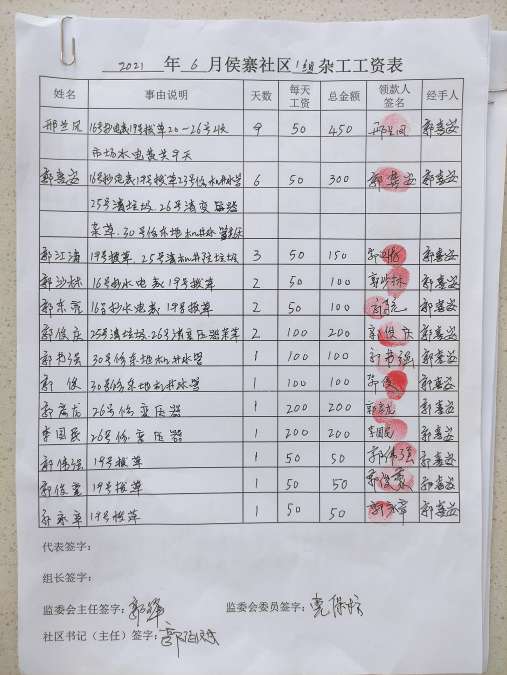 2021 年 6 月侯寨社区 1组 杂工工资表
姓名 事由说明 天数 每天工资 总金额 领款人签名 经手人
邢兰凤 16号抄电表19号拔草20-26号4天 9 50 450 邢兰凤 郭喜安
市场水电费共9天
郭喜安 16号抄电表19号拔草23号修机井水管 6 50 300 郭喜安 郭喜安
25号清垃圾.26号清变压器
杂草.30号修东地机井水管
郭江海 19号拔草 25号清 垃圾 3 50 150 郭喜安
郭沙林 16号抄水电表19号拔草 2 50 100 郭沙林 郭喜安
郭东亮 16号抄水电表 19号拔草 2 50 100 郭喜安
郭俊庆 25号清垃圾.26号清变压器杂草 2 100 200 郭俊庆 郭喜安
郭书强 30号修东地机井水管 1 100 100 郭书强 郭喜安
郭俊 30号修东地机井水管 1 100 100 郭俊 郭喜安
郭彦龙 26号修变压器 1 200 200 郭彦龙 郭喜安
李国民 26号修变压器 1 200 200 李国民 郭喜安
郭伟强 19号拔草 1 50 50 郭伟强 郭喜安
郭俊 19号拔草 1 50 50 郭俊 郭喜安
永章 19号拔草 1 50 50 永章 郭喜安
代表签字：
组长签字：
监委会主任签字： 监委会委员签字：
社区书记（主任）签字：